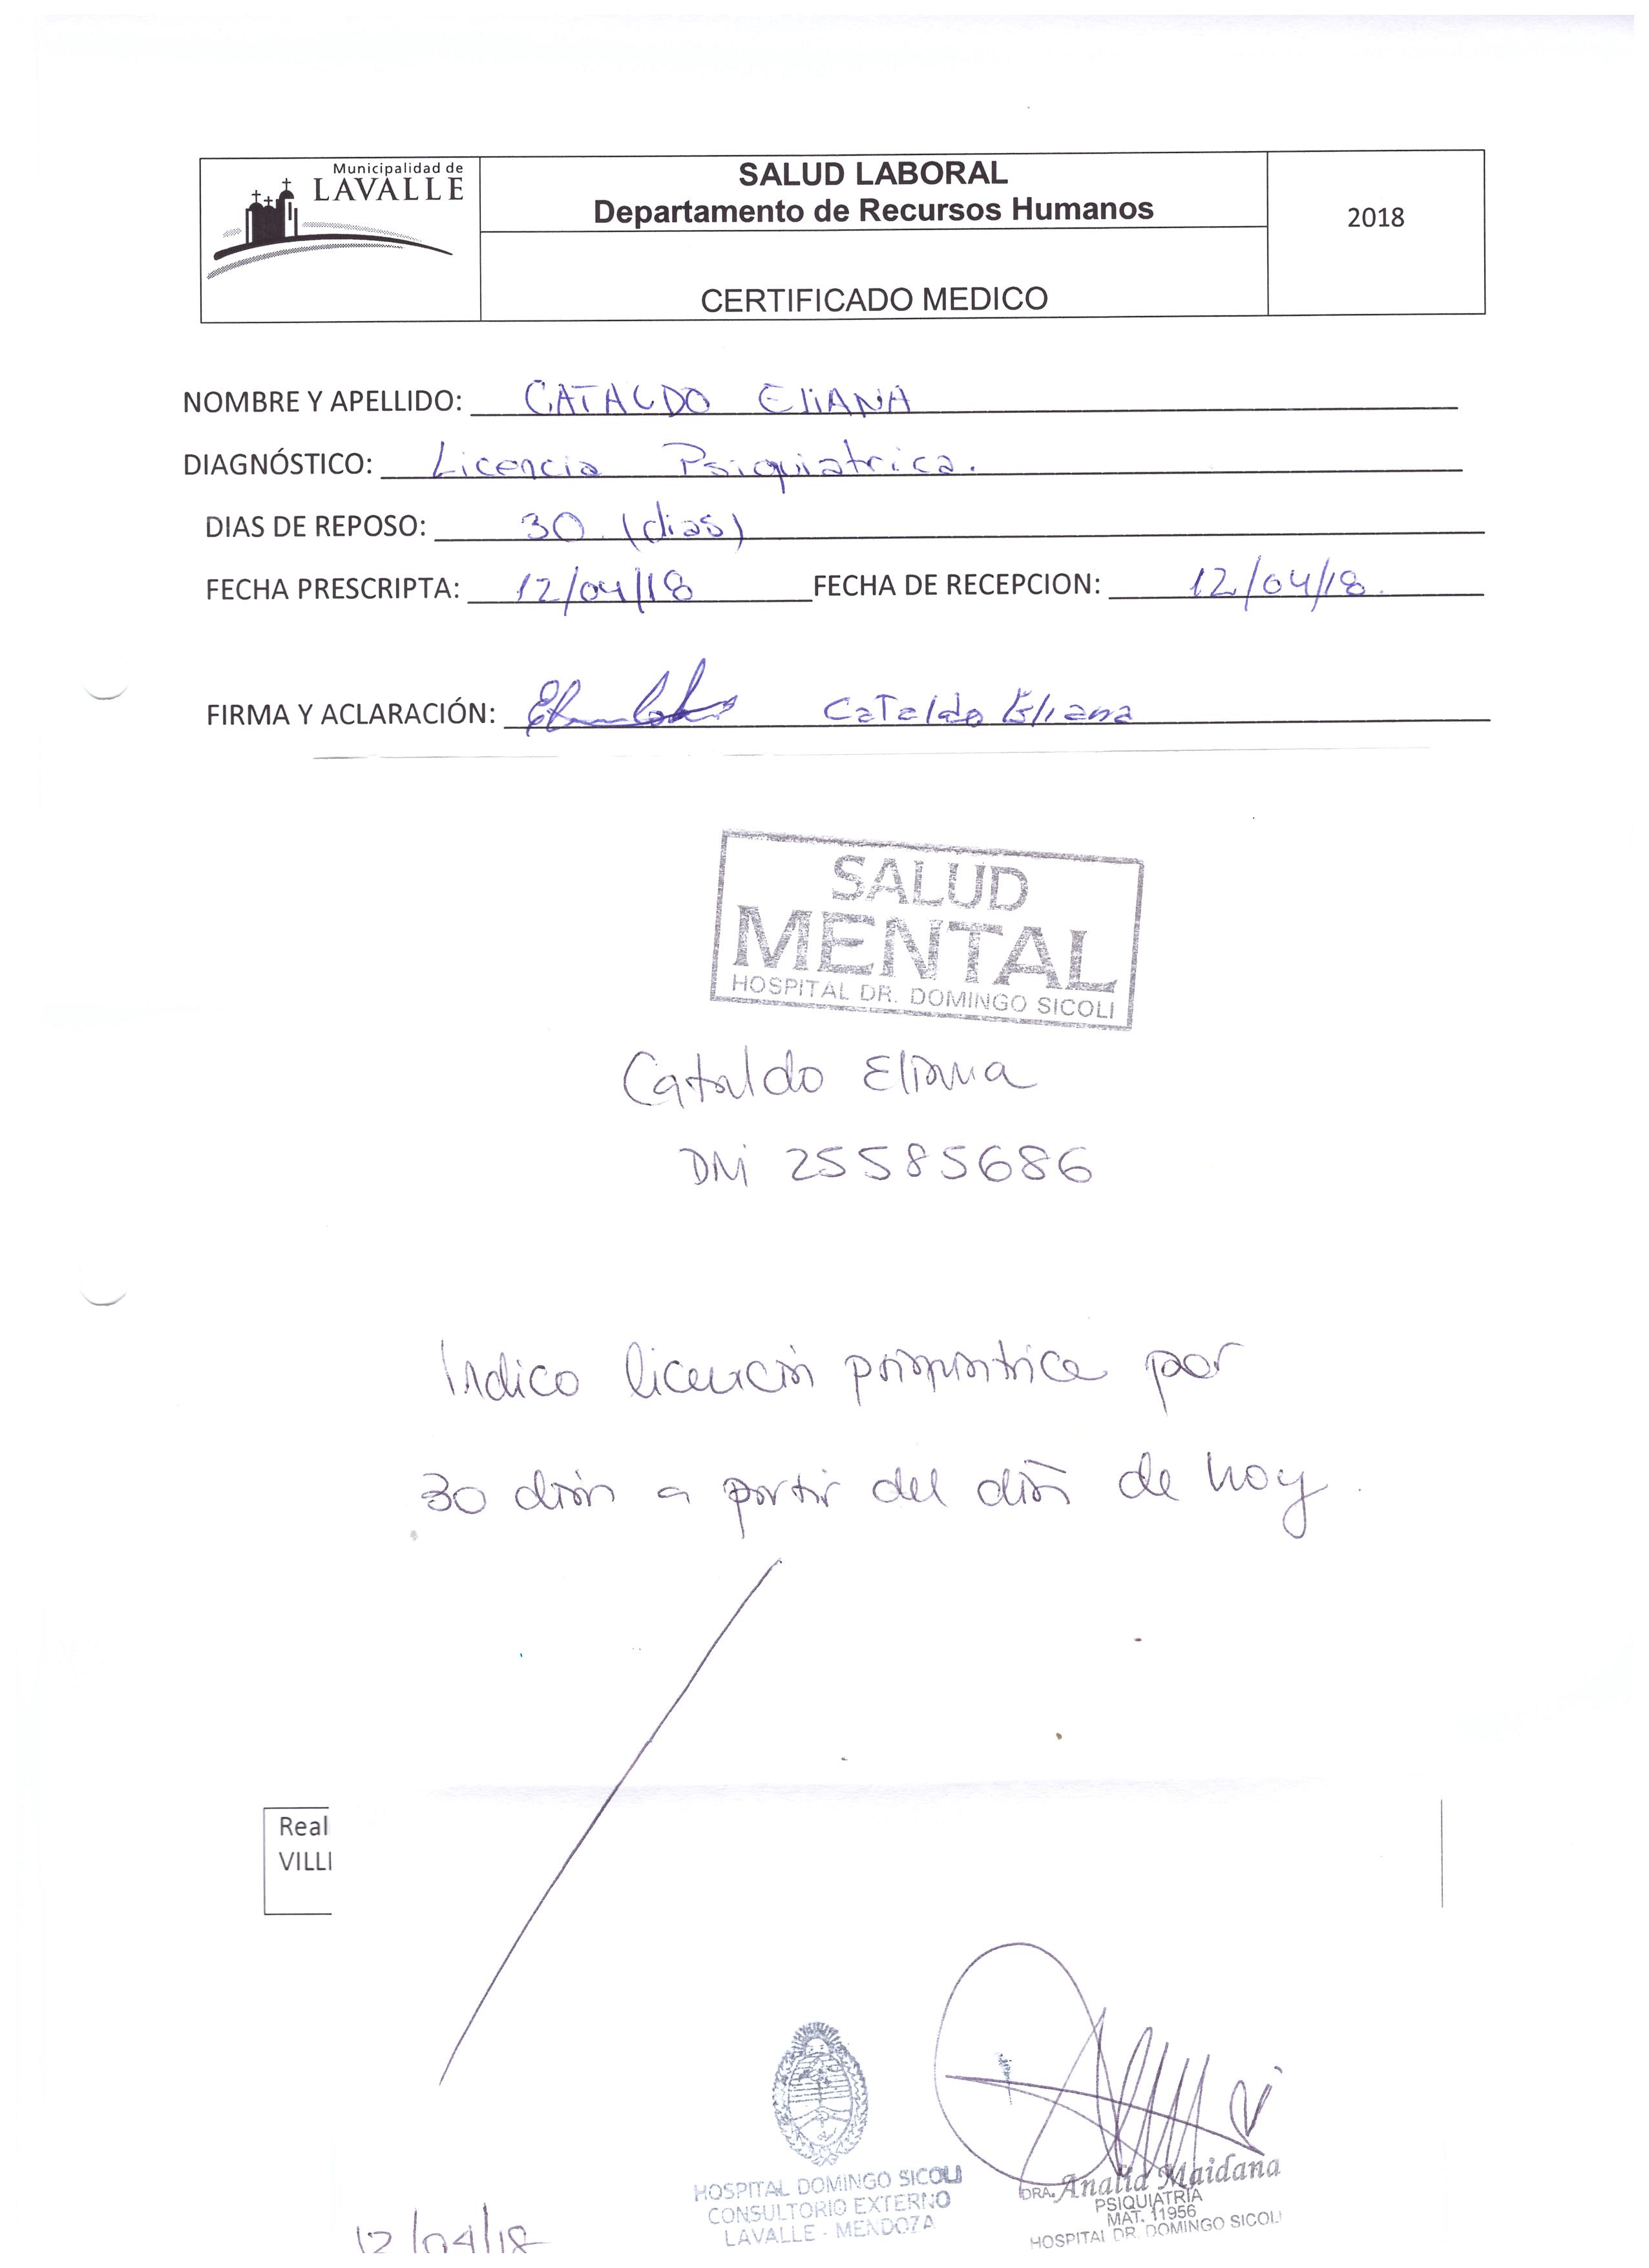 Municipalidad de
LAVALLE
SALUD LABORAL
Departamento de Recursos Humanos
2018
CERTIFICADO MEDICO
NOMBRE Y APELLIDO: CATALDO ELIANA
DIAGNÓSTICO: Licencia Psiquiatrica.
DIAS DE REPOSO: 30 (dias)
FECHA PRESCRIPTA: 12/04/18 FECHA DE RECEPCION: 12/04/18.
FIRMA Y ACLARACIÓN: Cataldo Eliana
SALUD
MENTAL
HOSPITAL DR. DOMINGO SICOLI
Cataldo Eliana
DNI 25585686
Indico licencia psiquiatrica por
30 días a partir del día de hoy.
Real
VILLI
HOSPITAL DOMINGO SICOLI
CONSULTORIO EXTERNO
LAVALLE - MENDOZA
DRA. Analía Maidana
PSIQUIATRIA
MAT. 11956
HOSPITAL DR. DOMINGO SICOLI
12/04/18